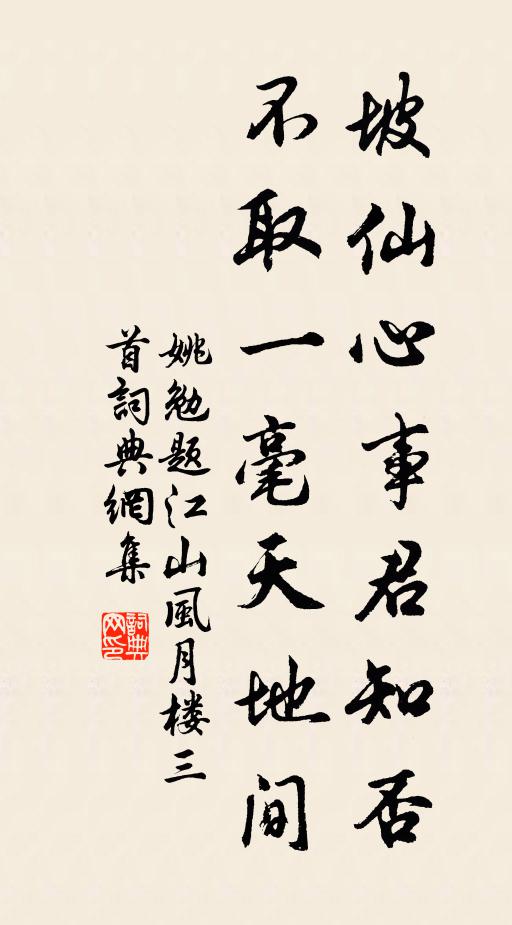 坡仙心事君知否
不取一毫天地间
姚勉题江山風月楼三
首詞典網集
詞典网印